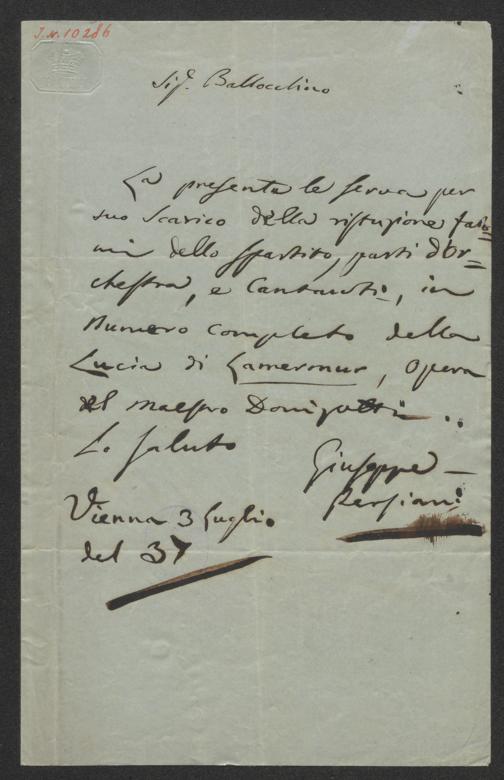 J.N. 10286
Sigr. Ballocchino
La presente le serva per
suo scarico della ristuzione fata=
mi dello spartito, parti d'Or=
chestra, e Cantanti, in
Numero completo della
Lucia di Lamermur, Opera
del Maestro Donizetti ..
Lo saluto
Giuseppe
Persiani
Vienna 3 Luglio
del 37